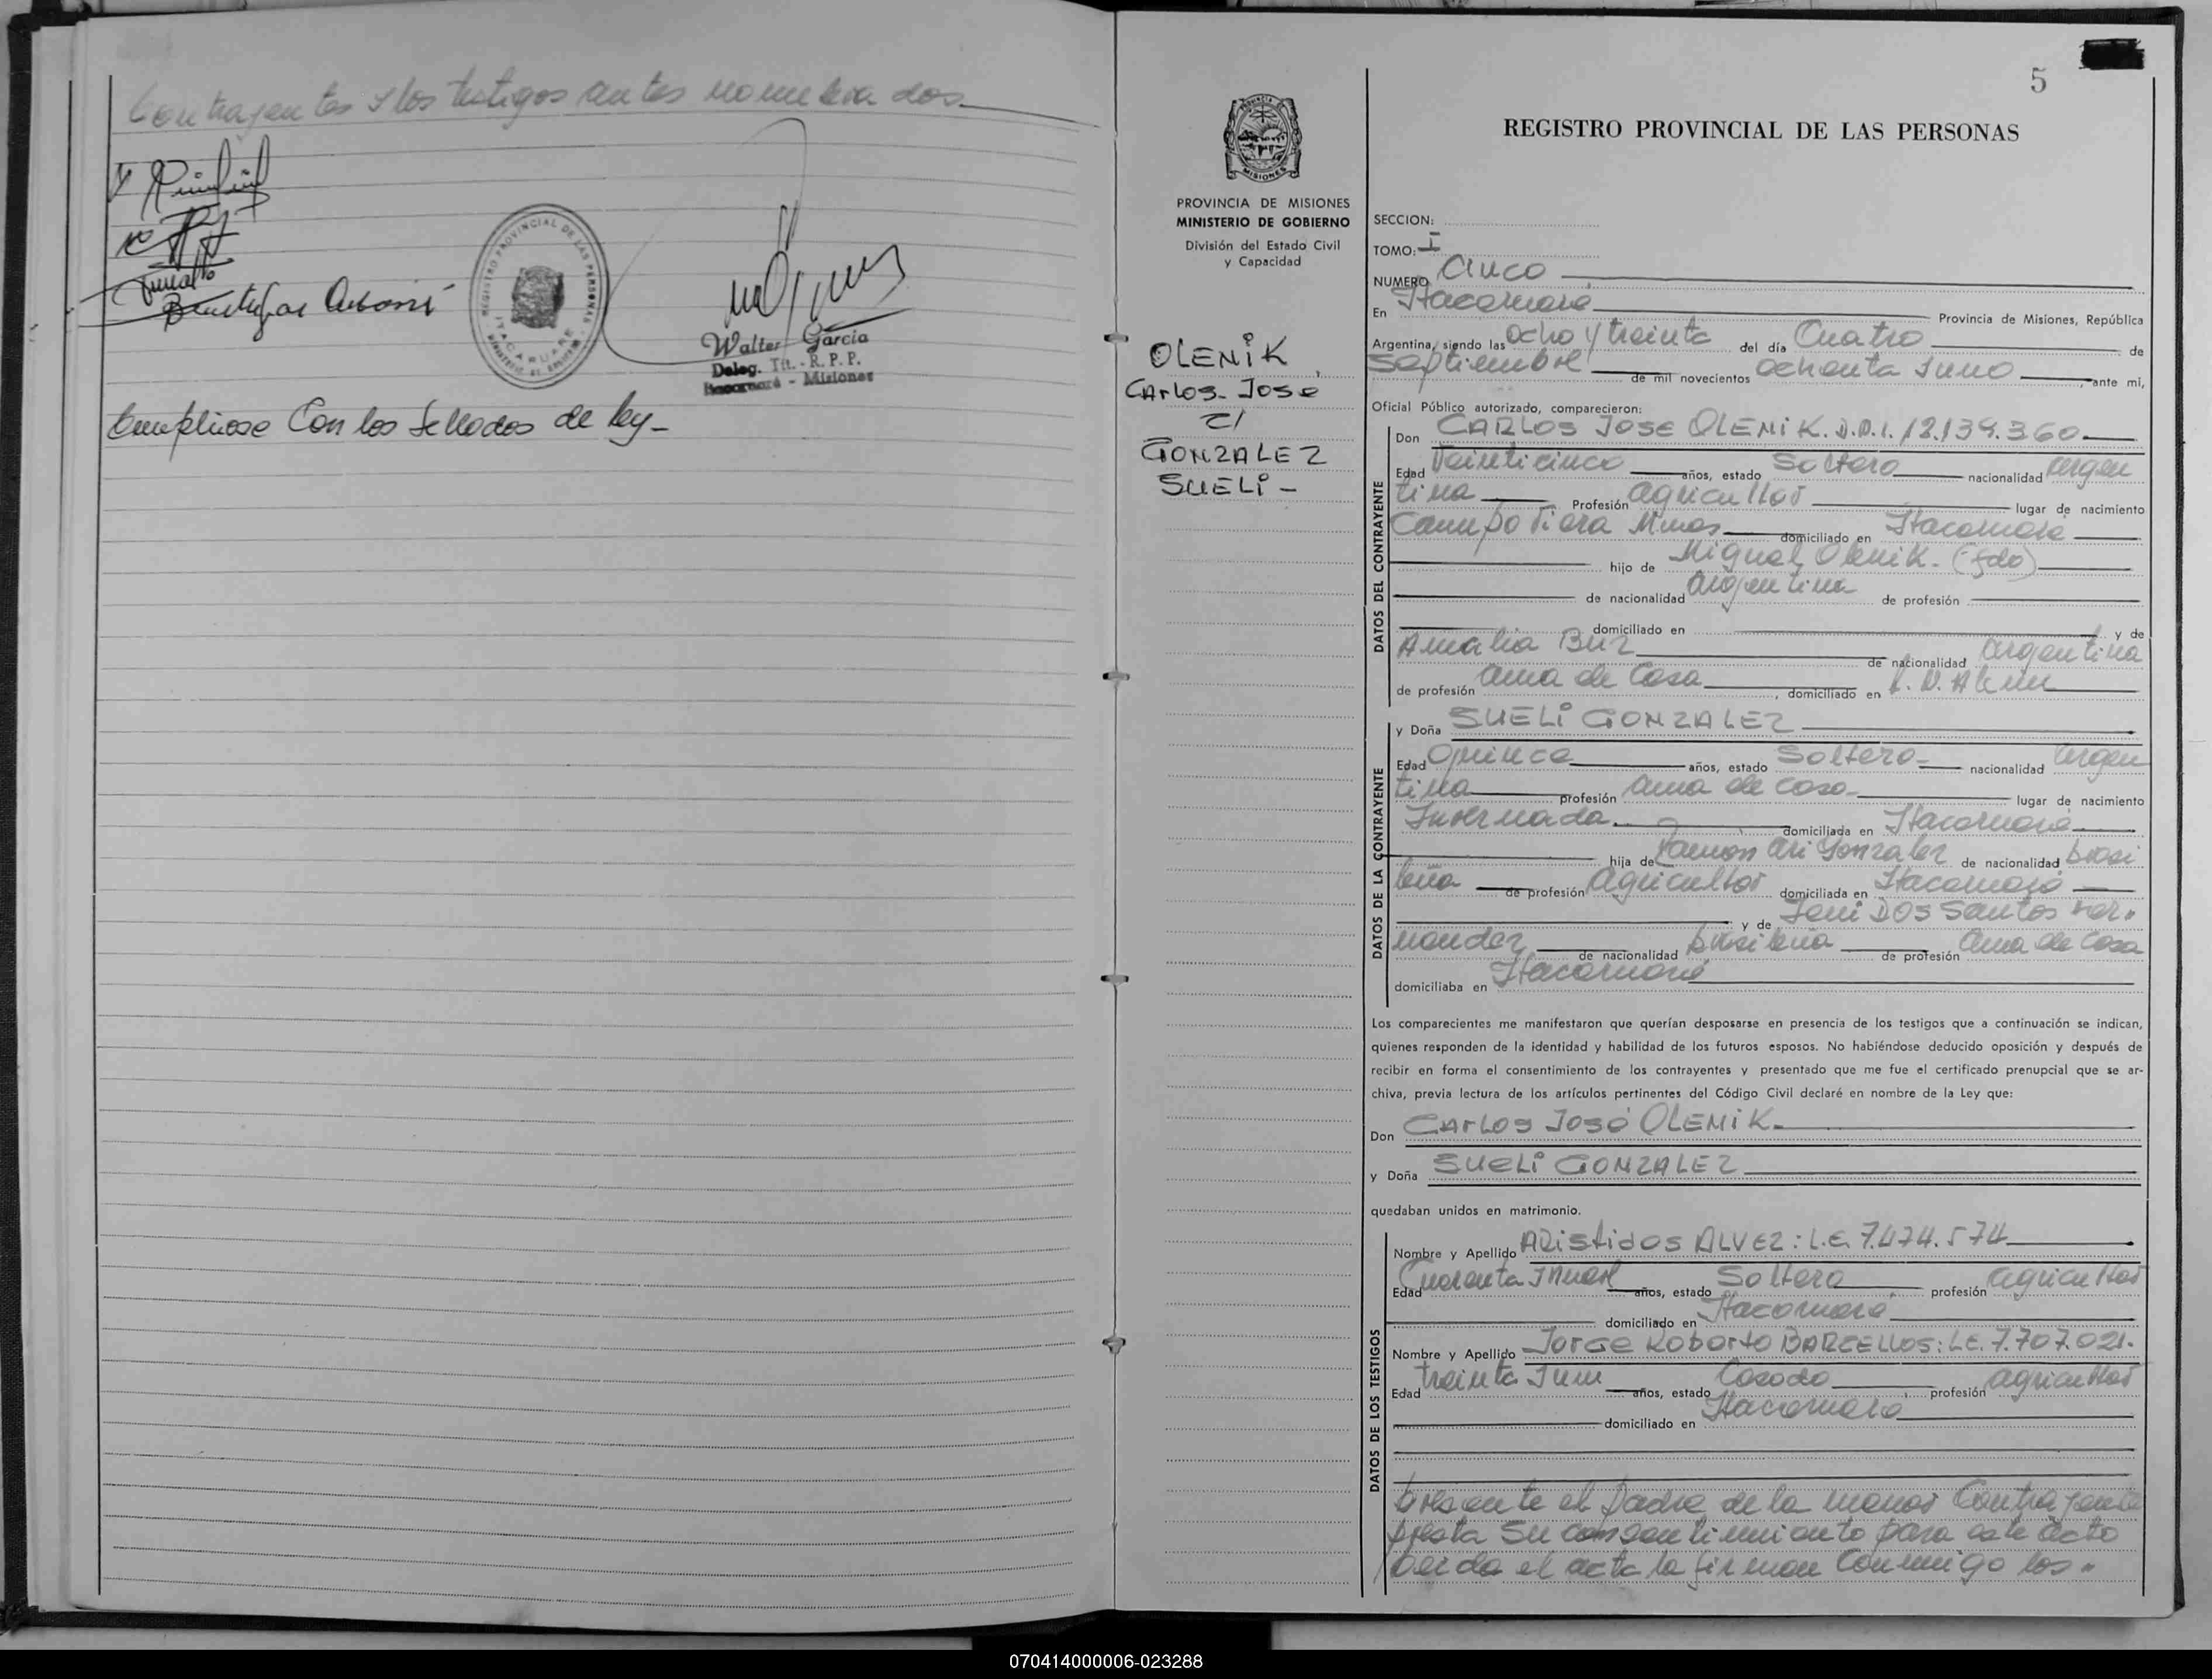 Contrayentes y los testigos antes nombrados
REGISTRO PROVINCIAL DE LAS PERSONAS
ITACARUARE
Walter Garcia
Deleg. Tit. - R. P. P.
Itacaruaré - Misiones
Cumpliose Con los Sellados de ley -
5
REGISTRO PROVINCIAL DE LAS PERSONAS
MISIONES
PROVINCIA DE MISIONES
MINISTERIO DE GOBIERNO
División del Estado Civil
y Capacidad
OLENIK
Carlos - José
c/
GONZALEZ
SUELI -
SECCION:
TOMO: I
NUMERO Cinco
En Itacaruaré Provincia de Misiones, República
Argentina, siendo las ocho y treinta del día Cuatro de
Septiembre de mil novecientos ochenta y uno, ante mi,
Oficial Público autorizado, comparecieron:
DATOS DEL CONTRAYENTE
Don CARLOS JOSE OLENIK. D.N.I. 12.139.360
Edad Veinticinco años, estado Soltero nacionalidad argen
tina Profesión agricultor lugar de nacimiento
Campo Viera Mnes domiciliado en Itacaruaré
hijo de Miguel Olenik. (fdo)
de nacionalidad argentina de profesión
domiciliado en y de
Amalia de nacionalidad argentina
de profesión ama de Casa, domiciliado en L. N. Alem
DATOS DE LA CONTRAYENTE
y Doña SUELI GONZALEZ
Edad quince años, estado Soltera nacionalidad argen
tina profesión ama de casa lugar de nacimiento
Invernada. domiciliada en Itacaruaré
hija de Ramón Ari Gonzalez de nacionalidad brasi
leña de profesión agricultor domiciliada en Itacaruaré
y de Dos Santos Fer-
nandez de nacionalidad brasileña de profesión ama de casa
domiciliaba en Itacaruaré
Los comparecientes me manifestaron que querían desposarse en presencia de los testigos que a continuación se indican,
quienes responden de la identidad y habilidad de los futuros esposos. No habiéndose deducido oposición y después de
recibir en forma el consentimiento de los contrayentes y presentado que me fue el certificado prenupcial que se ar-
chiva, previa lectura de los artículos pertinentes del Código Civil declaré en nombre de la Ley que:
Don Carlos José OLENIK
y Doña SUELI GONZALEZ
quedaban unidos en matrimonio.
DATOS DE LOS TESTIGOS
Nombre y Apellido Aristides ALVEZ: L.E. 7.474.574
Edad Cuarenta y nueve años, estado Soltero profesión agricultor
domiciliado en Itacaruaré
Nombre y Apellido Jorge Roberto BARCELLOS: L.E. 7.707.021.
Edad treinta y un años, estado Casado profesión agricultor
domiciliado en Itacaruaré
Presente el Padre de la menor Contrayente
presta su consentimiento para este acto
Leida el acta la firman Conmigo los
070414000006-023288